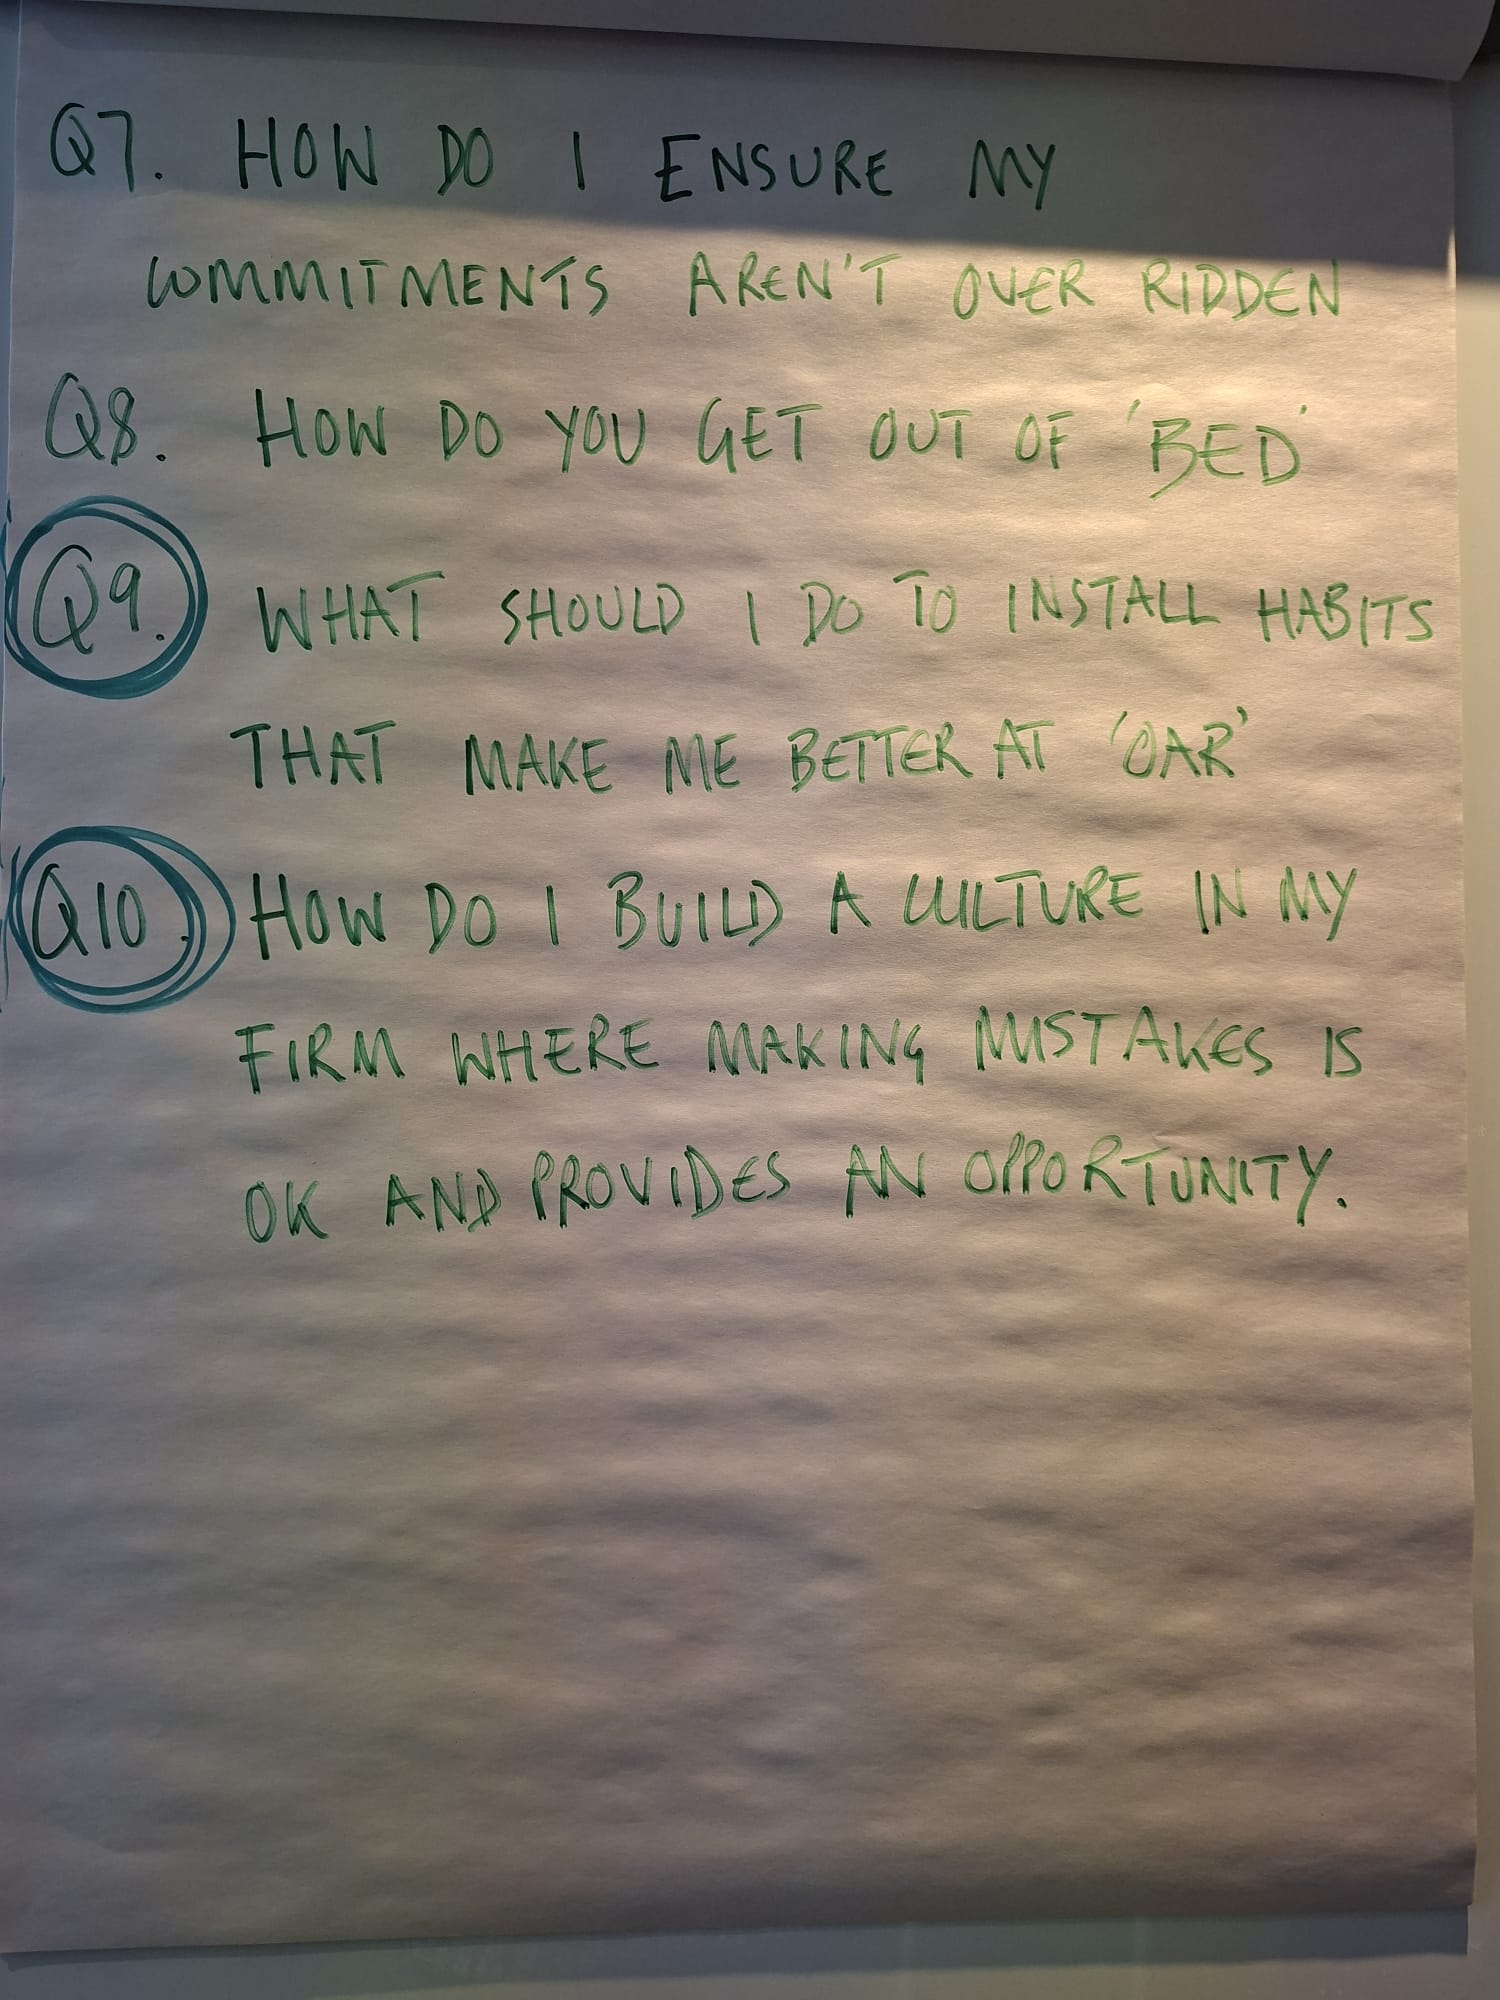 Q7. HOW DO I ENSURE MY
COMMITMENTS AREN'T OVER RIDDEN
Q8. HOW DO YOU GET OUT OF 'BED'
Q9. WHAT SHOULD I DO TO INSTALL HABITS
THAT MAKE ME BETTER AT 'OAR'
Q10. HOW DO I BUILD A CULTURE IN MY
FIRM WHERE MAKING MISTAKES IS
OK AND PROVIDES AN OPPORTUNITY.